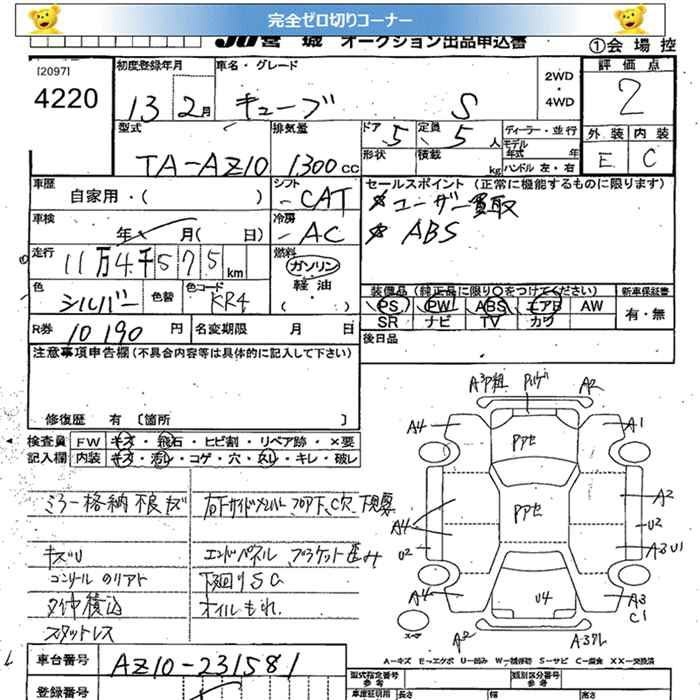 完全ゼロ切りコーナー
JU宮城 オークション出品申込書 ①会場控
[2097]
4220
初度登録年月
13 2月
車名・グレード
キューブ S
2WD・4WD
評価点
2
外装 内装
E C
型式
TA-AZ10
排気量
1300cc
ドア 5
定員 5人
形状 積載 kg
ディーラー・並行
モデル年式 年
ハンドル 左・右
車歴
自家用・( )
シフト
CAT
セールスポイント (正常に機能するものに限ります)
ユーザー買取
ABS
車検
年 月( 日)
冷房
AC
走行
11万4千575km
燃料
ガソリン
軽油
( )
色
シルバー
色替
色コード
KR4
装備品 (純正品に限り○をつけてください)
PS PW ABS エアB AW
SR ナビ TV カワ
新車保証書
有・無
R券 10190円
名変期限 月 日
後日品
注意事項申告欄(不具合内容等は具体的に記入して下さい)
修復歴 有 〔箇所 〕
検査員記入欄
FW キズ・飛石・ヒビ割・リペア跡・×要
内装 キズ・汚れ・コゲ・穴・スレ・キレ・破レ
ミラー格納不良キズ
右下サイドメンバー フロア下、C穴、下現要
キズU
エンドパネル ブラケット歪み
コンソールのリアト
下廻りSC
オイルもれ.
スタットレス
A2
A4
PPセ
A1
PPセ
A4
A2
U2
U2
A3U1
A4
U4
A3
C1
A2
スペアー
A-キズ E-エクボ U-凹み W-補修跡 S-サビ C-腐食 XX-交換済
車台番号
AZ10-231581
登録番号
型式指定番号 参考
類別区分番号 参考
車庫証明用 長さ 幅 高さ